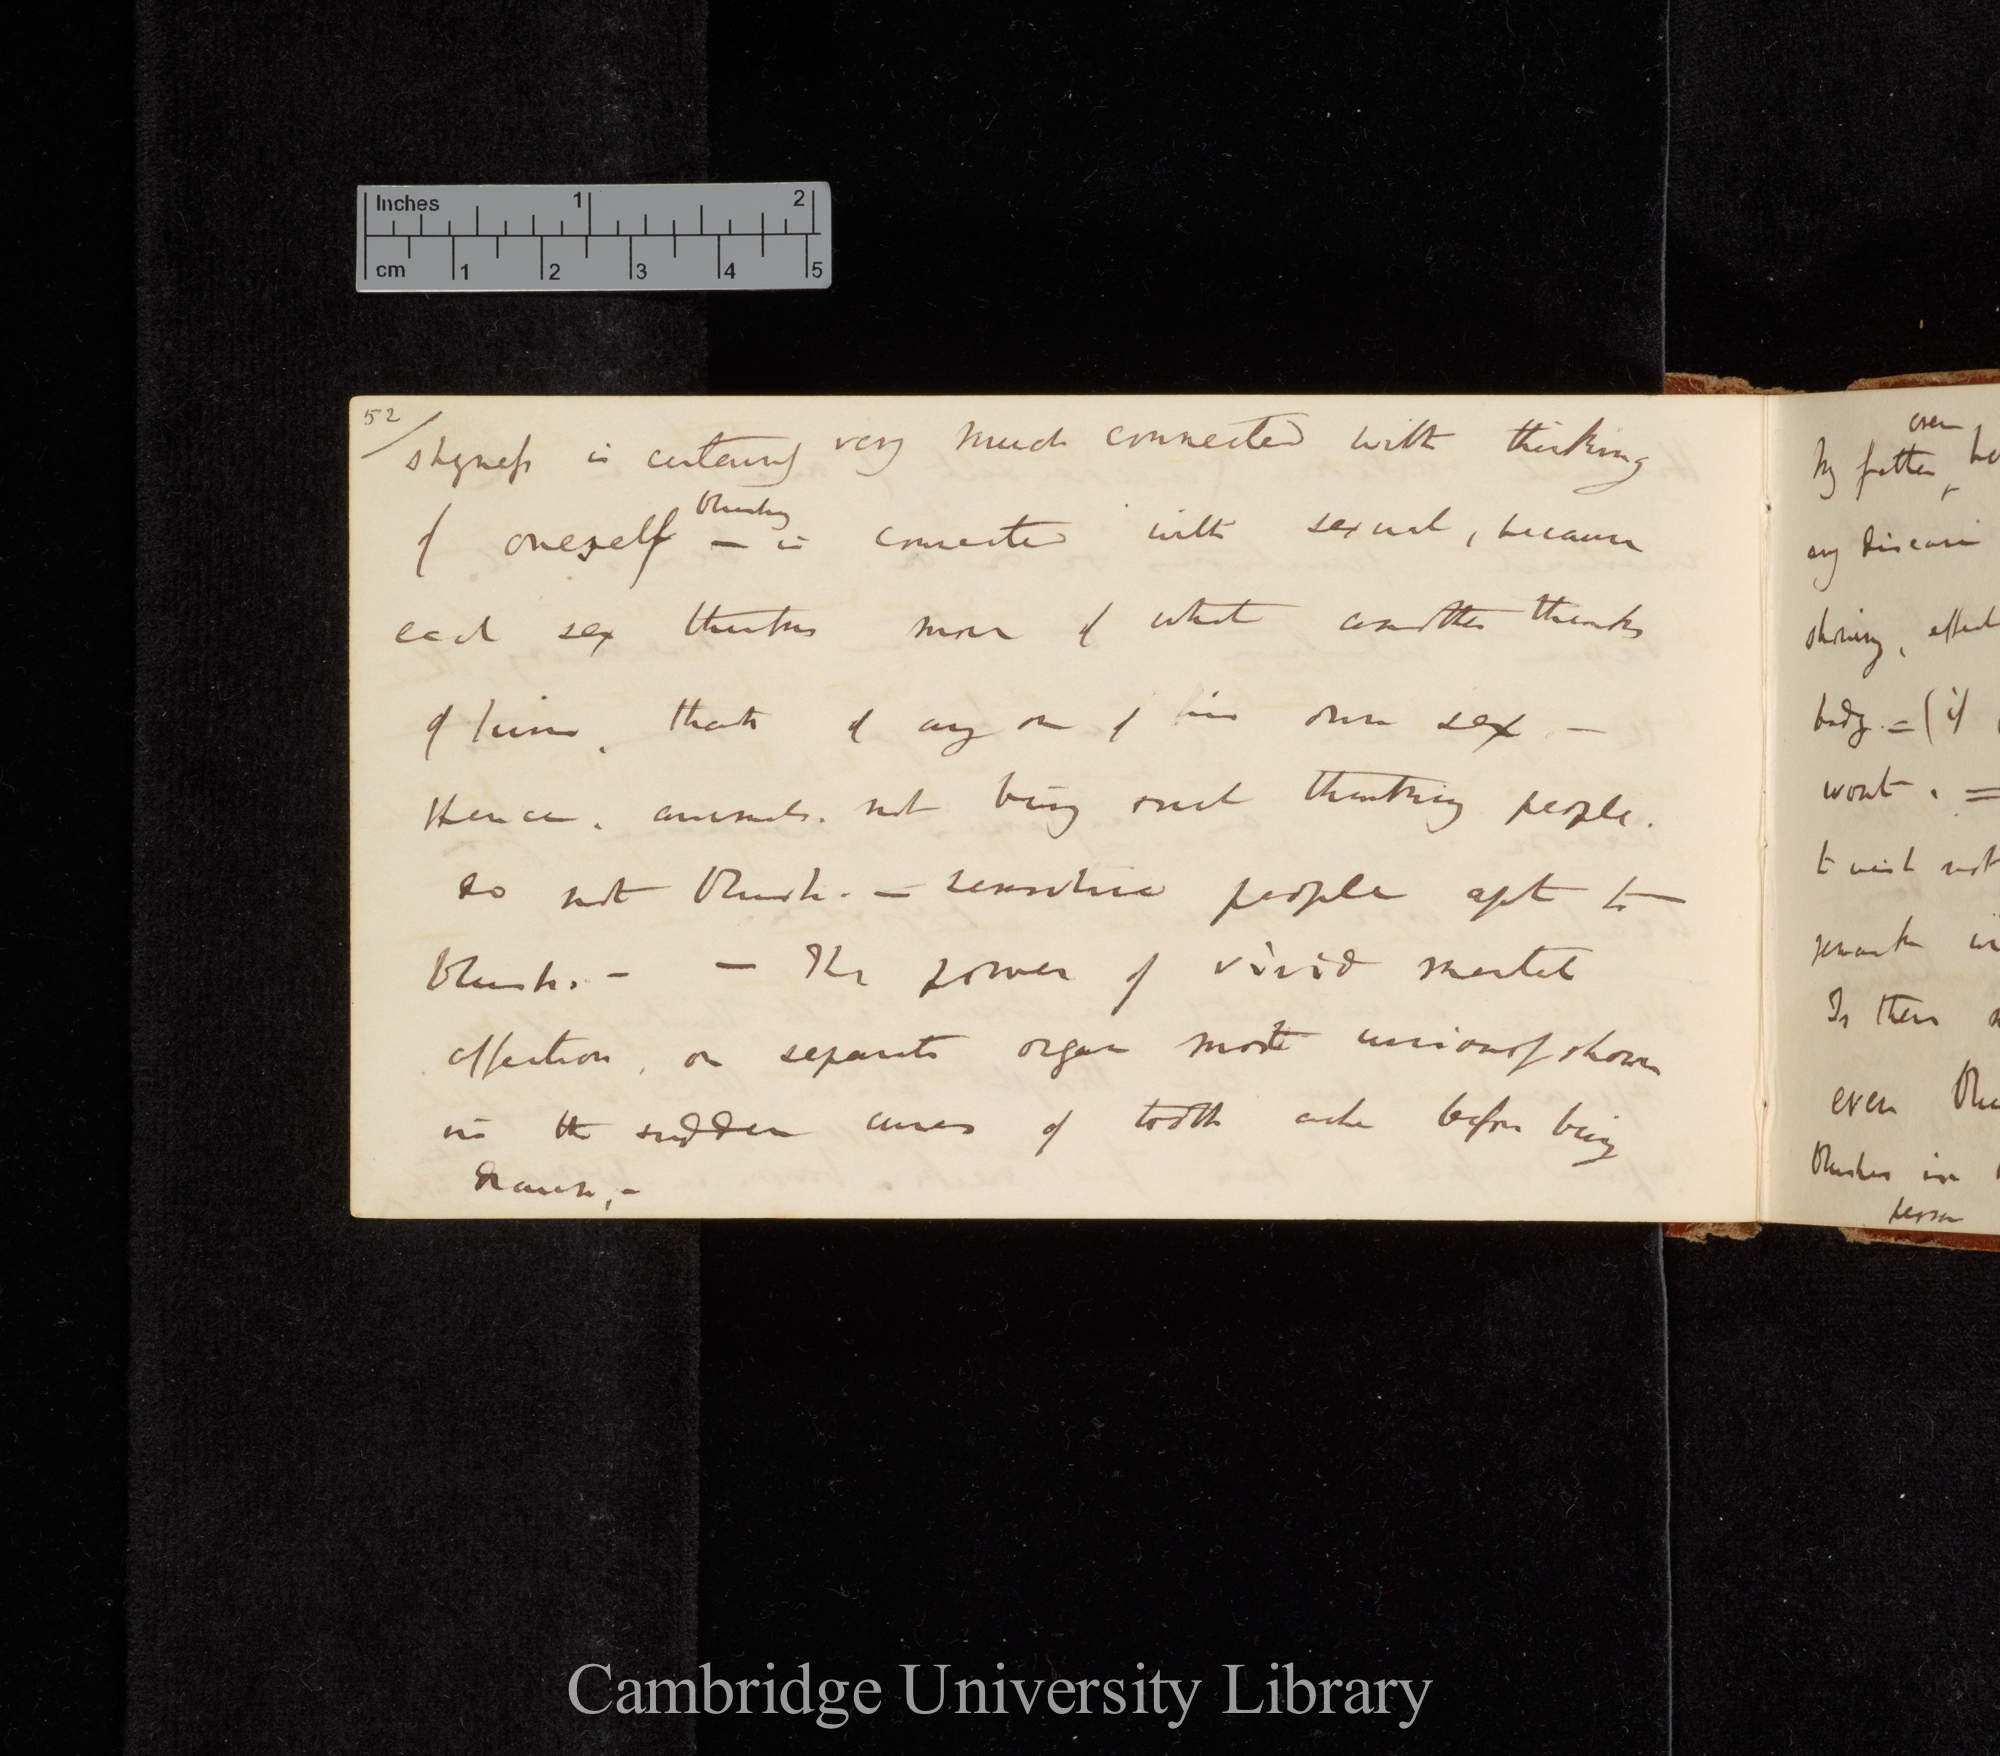 Inches 1 2
cm 1 2 3 4 5
52
shyness is certainly very much connected with thinking
of oneself. — blushing is connected with sexual, because
each sex thinks more of what another thinks
of him, than of any one of his own sex. —
Hence, animals. not being such thinking people.
do not blush. — sensitive people apt to
blush. — — The power of vivid mental
affection, on separate organs most curiously shown
in the sudden cures of tooth ache before being
drawn, —
even
My father
any disease
shining, effect
body. = (if
wont. =
to wish not
remark
Is there
even
blushes in
person
Cambridge University Library